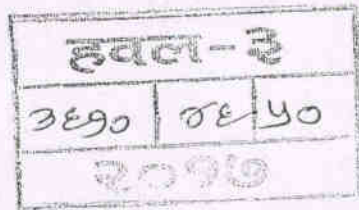 हवल-३
३६१० ४६ ५०
२०१७